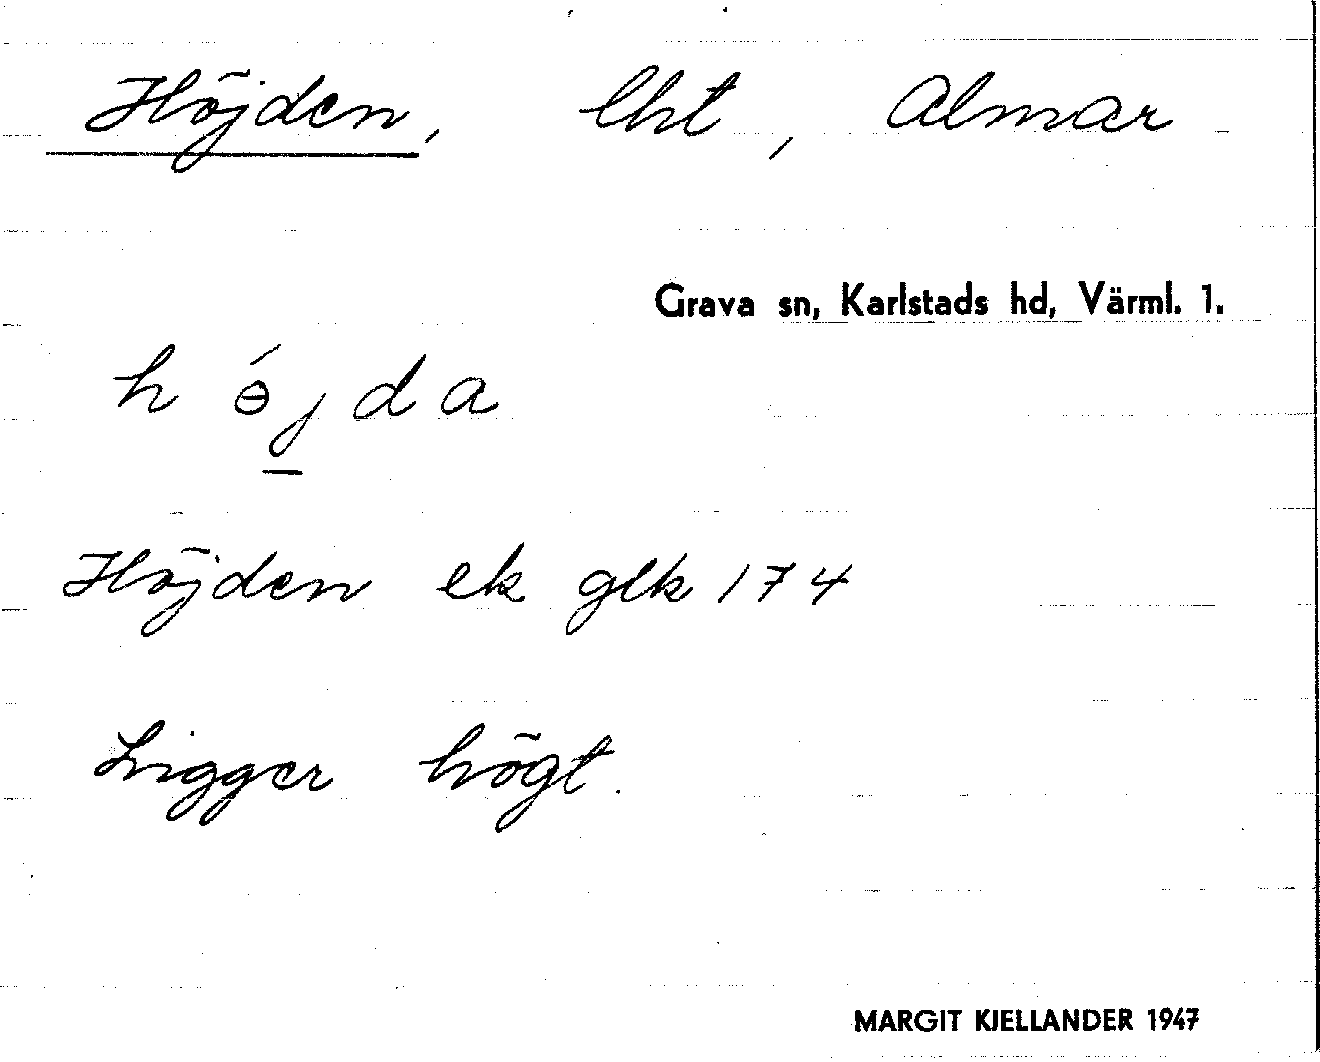 Höjden, lht, Almar
Grava sn, Karlstads hd, Värml. 1.
h ɵ́ j d a
Höjden ek glk 174
Ligger högt.
MARGIT KJELLANDER 1947